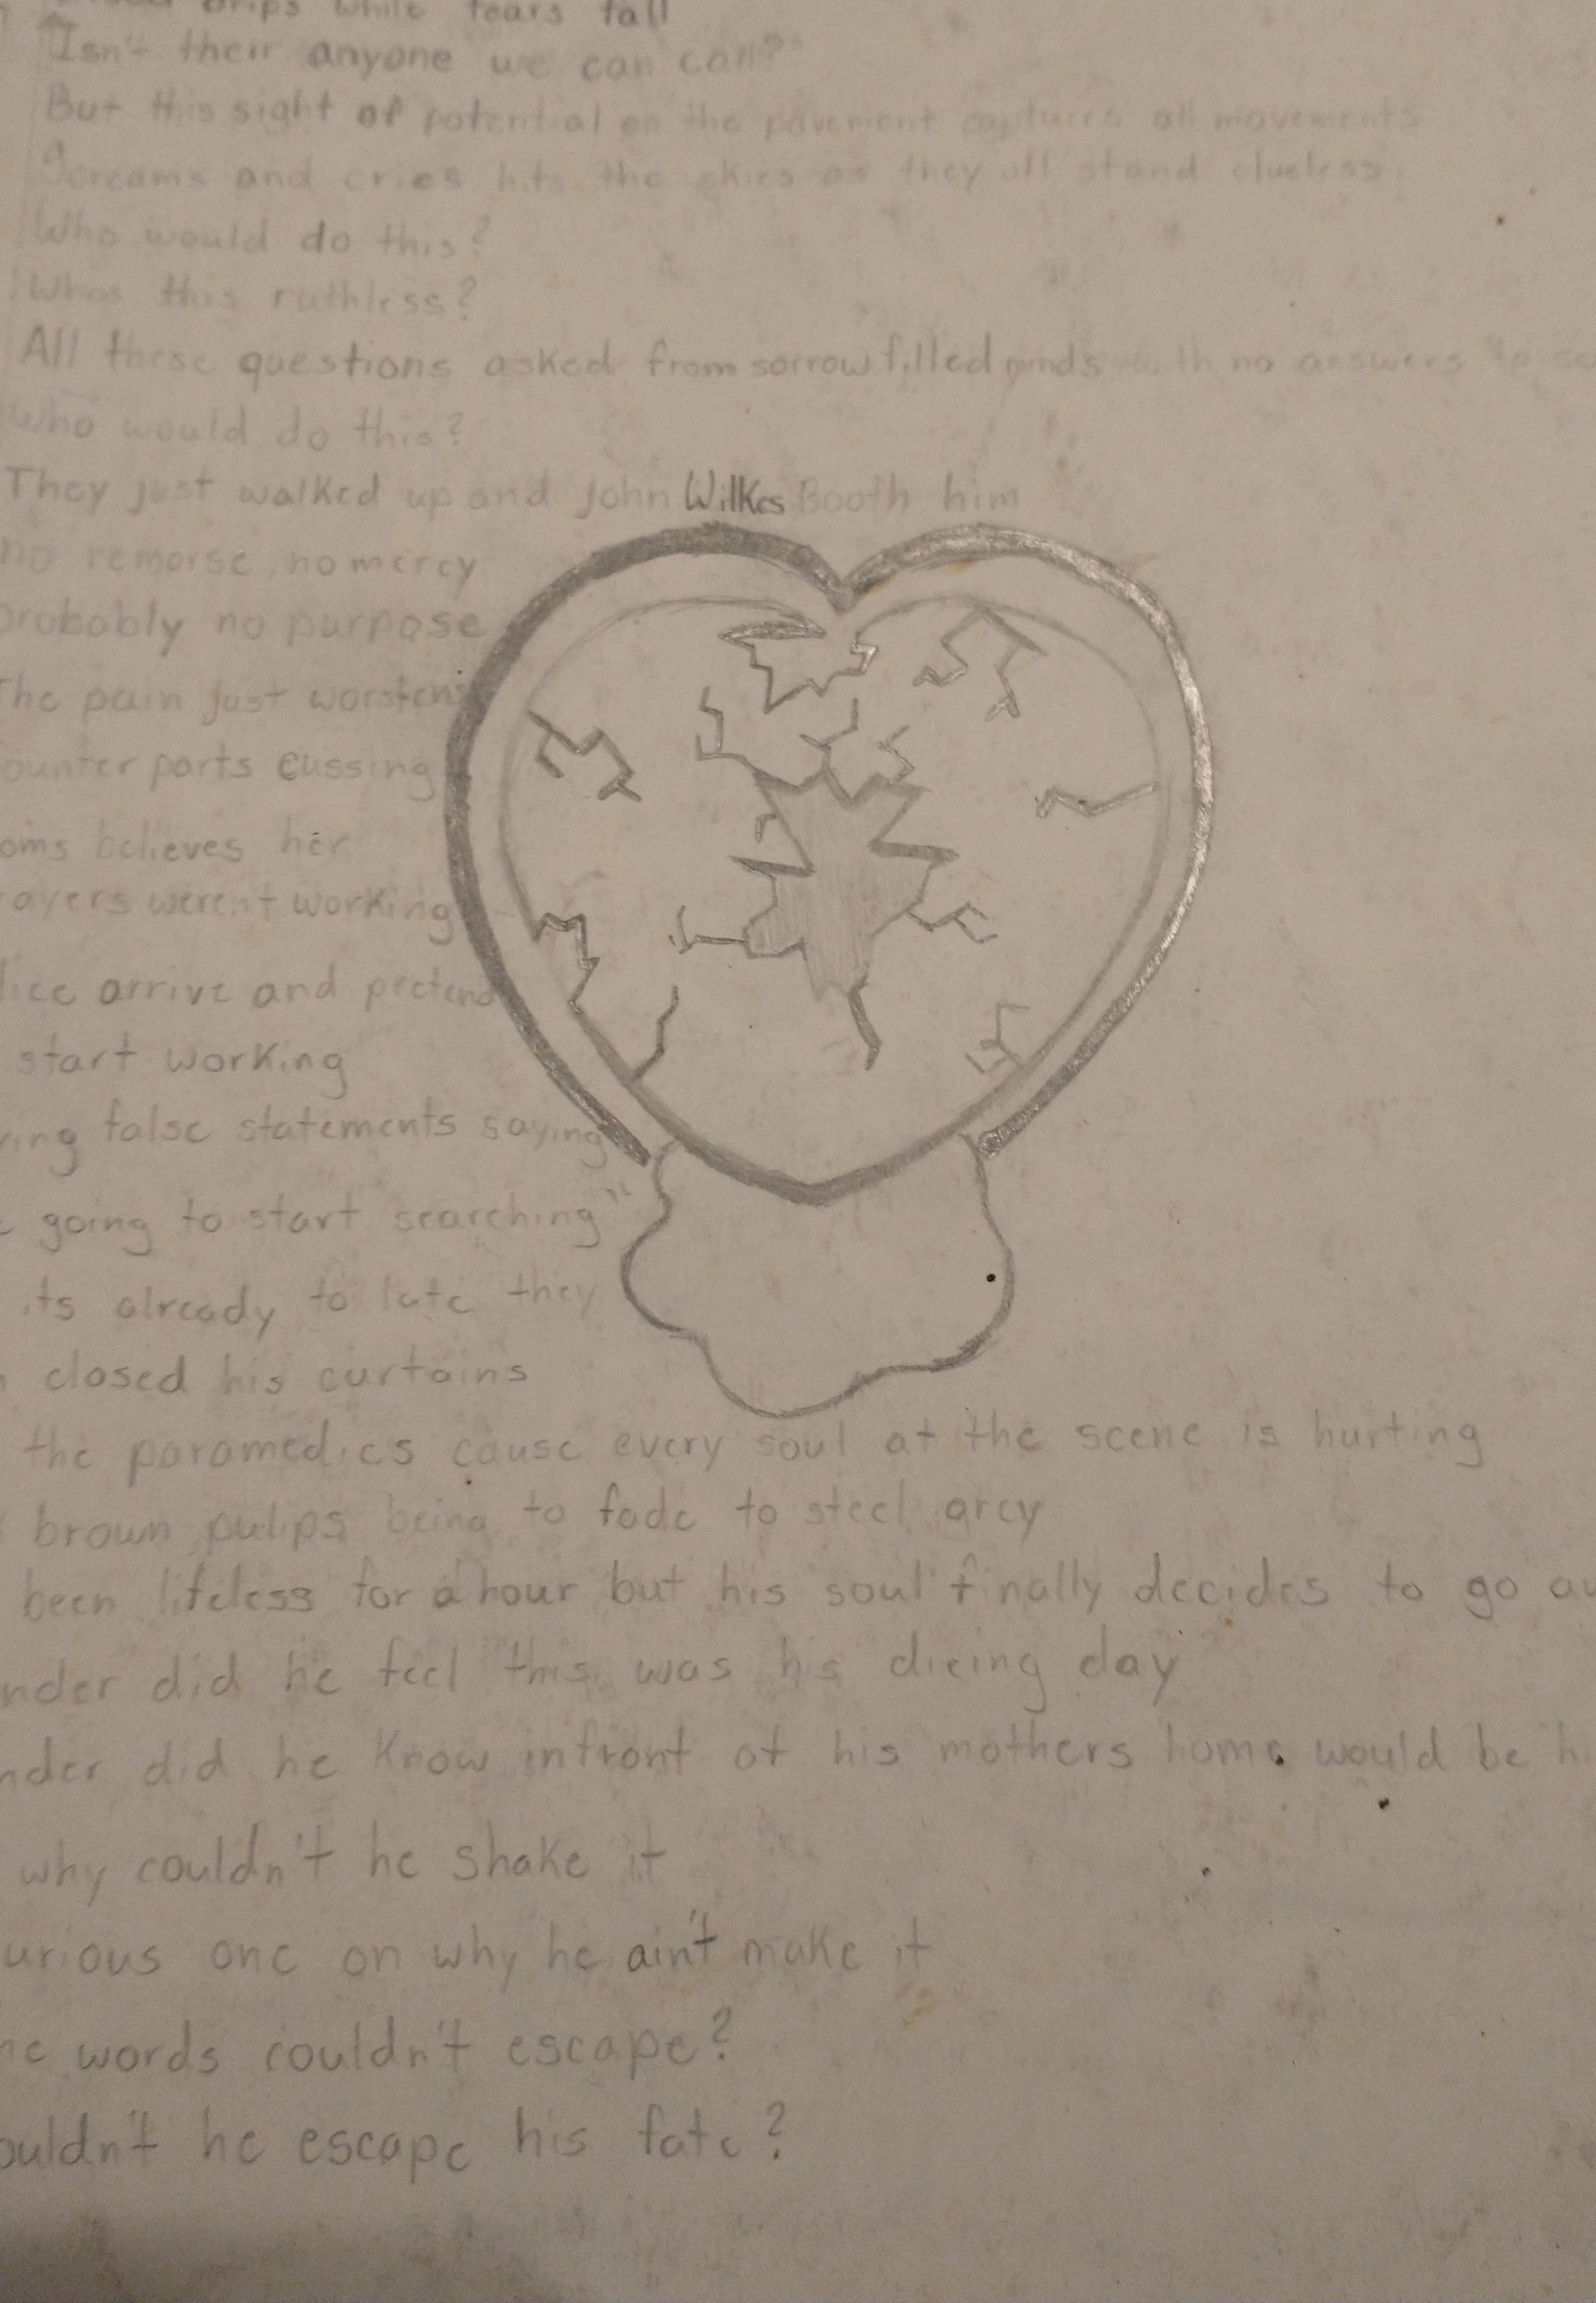 drips while tears fall
"Isn't their anyone we can call?"
But this sight of potential on the pavement captures all movements
Screams and cries hits the skies as they all stand clueless.
Who would do this?
Whos this ruthless?
All these questions asked from sorrow filled minds with no answers to
Who would do this?
They just walked up and John Wilkes Booth him
no remorse, no mercy
probably no purpose
The pain just worstens
ounter parts cussing
oms believes her
rayers weren't working
lice arrive and pretend
start working
ving false statements saying
going to start searching"
its already to late they
closed his curtains
the paramedics cause every soul at the scene is hurting
brown pulips being to fade to steel grey
been lifeless for a hour but his soul finally decides to go
nder did he feel this was his dieing day
nder did he know infront of his mothers home would be
why couldn't he shake it
urious one on why he ain't make it
words couldn't escape?
ouldn't he escape his fate?